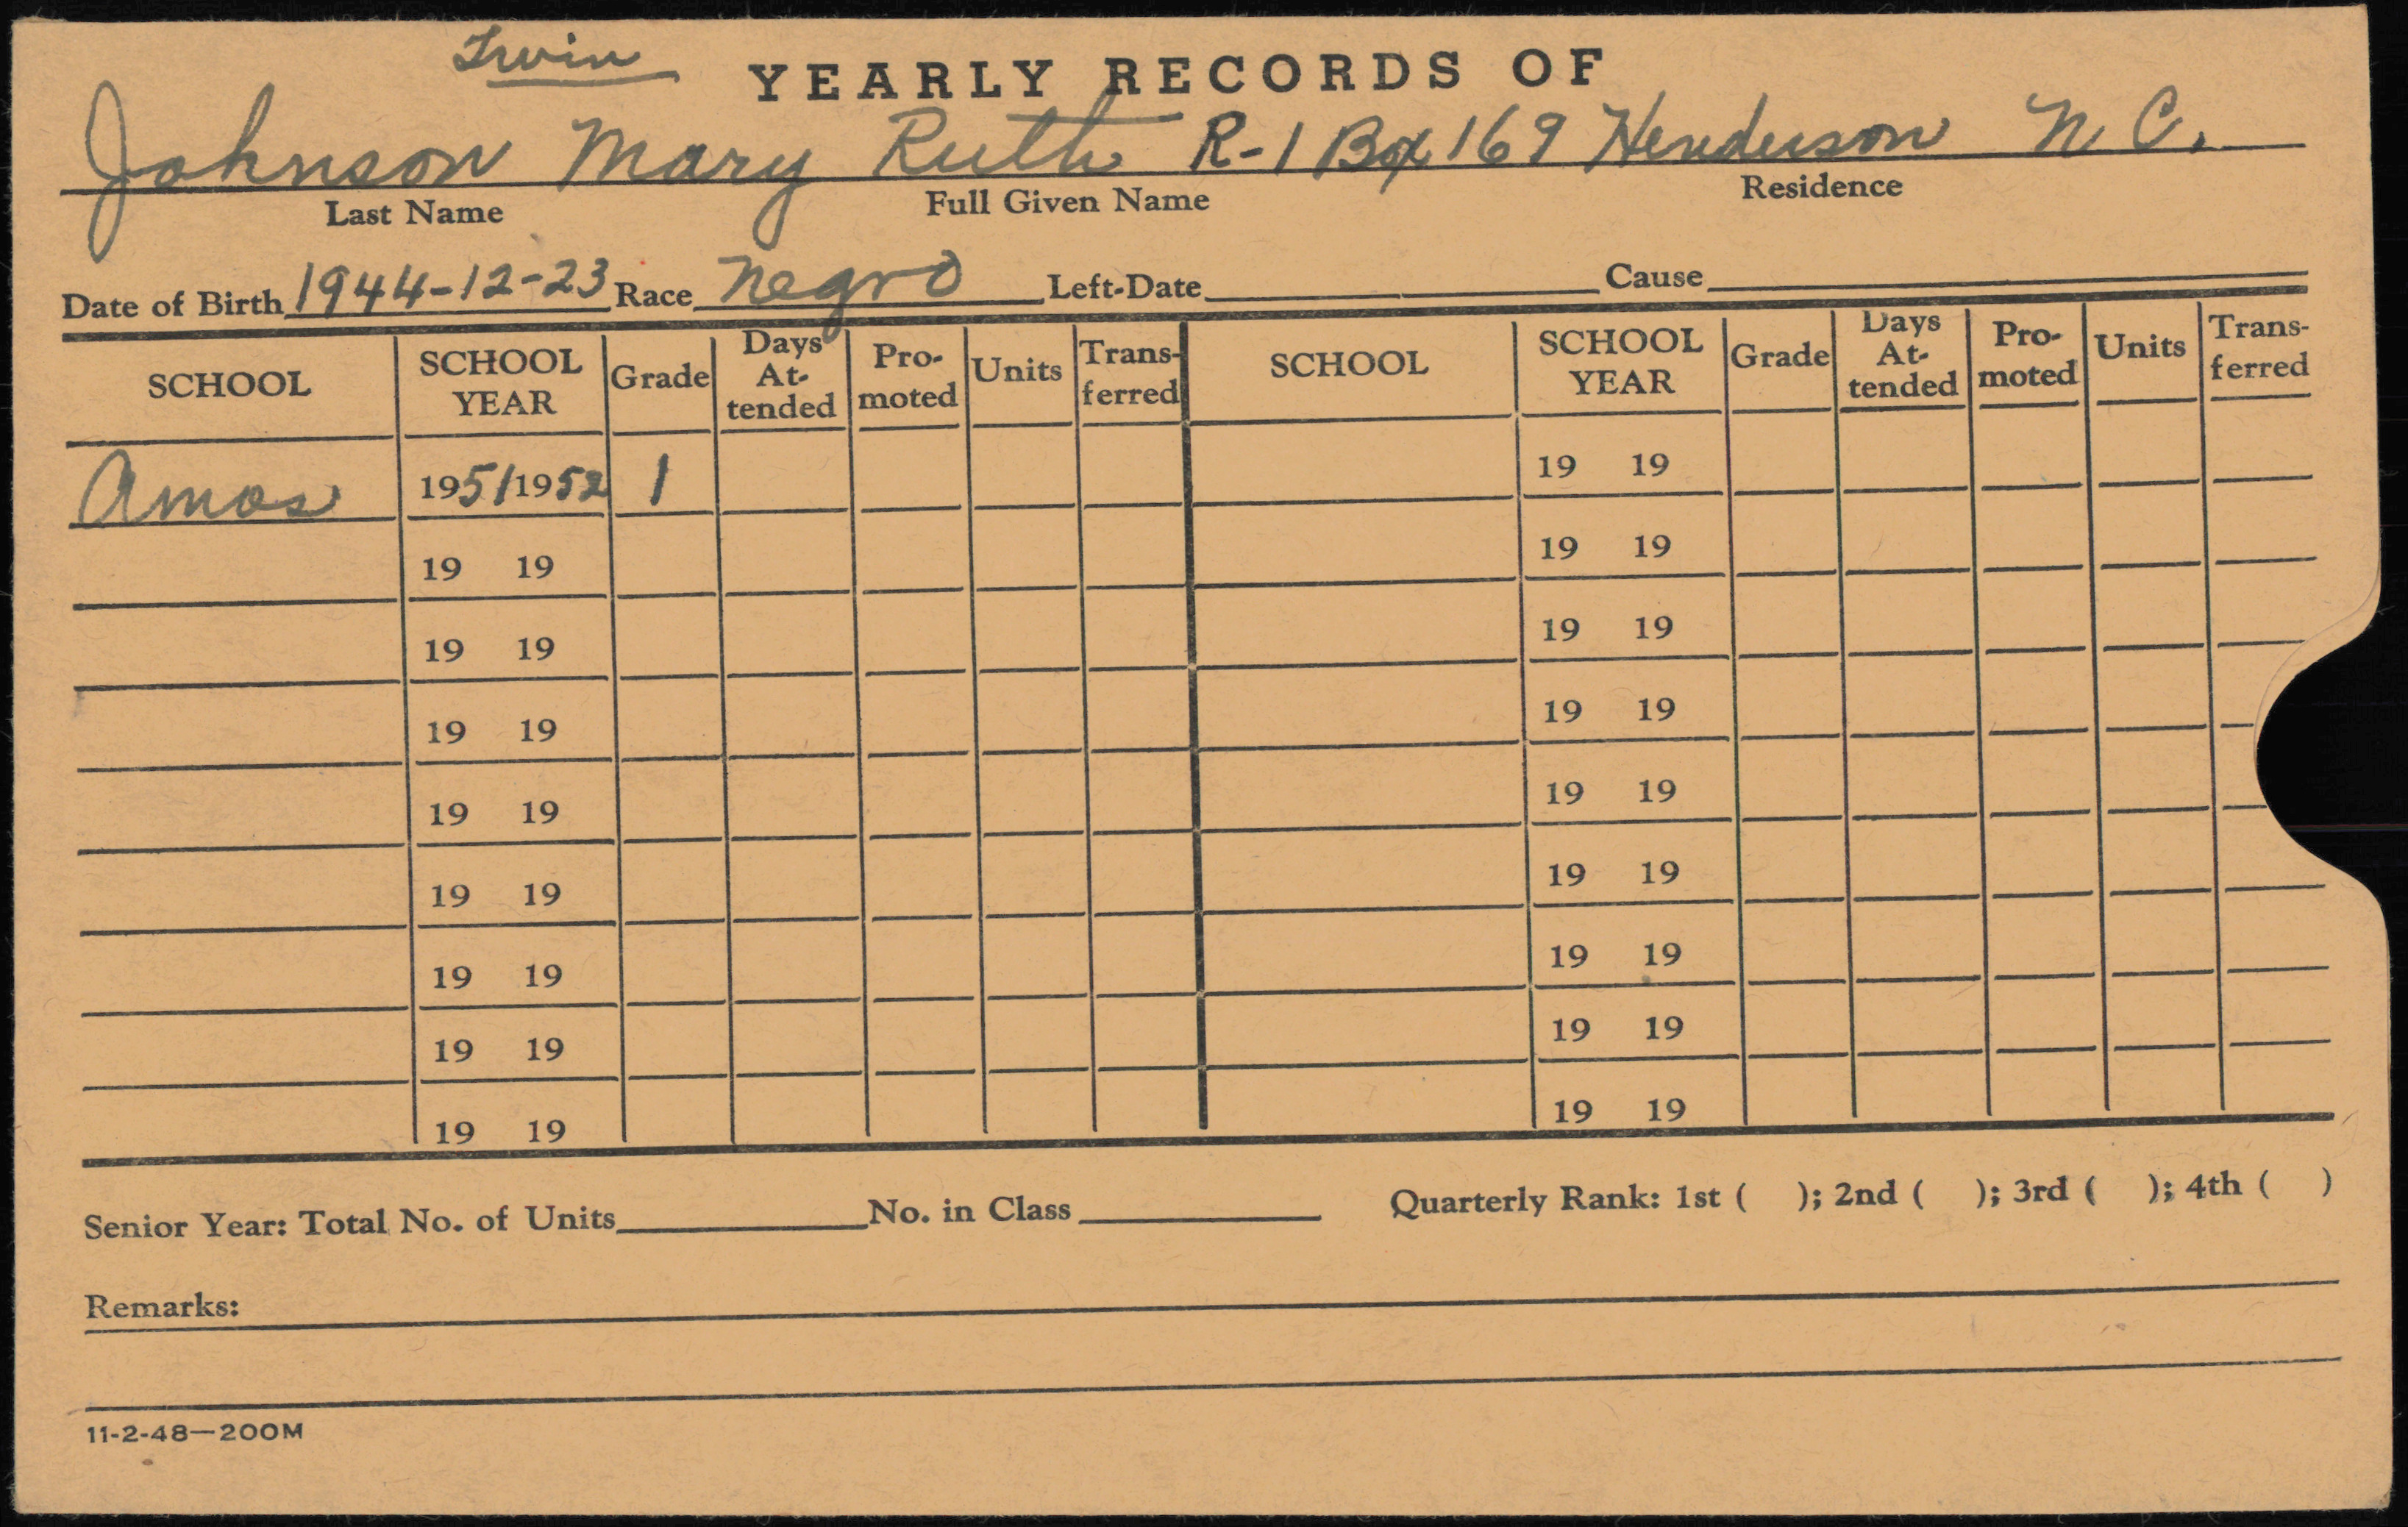 Irwin
YEARLY RECORDS OF
Johnson Mary Ruth R-1 Box 169 Henderson N. C.
Last Name Full Given Name Residence
Date of Birth 1944-12-23 Race Negro Left-Date Cause
SCHOOL SCHOOL YEAR Grade Days At-tended Pro-moted Units Trans-ferred SCHOOL SCHOOL YEAR Grade Days At-tended Pro-moted Units Trans-ferred
Amos 1951/1952 1 19 19
19 19 19 19
19 19 19 19
19 19 19 19
19 19 19 19
19 19 19 19
19 19 19 19
19 19 19 19
19 19 19 19
Senior Year: Total No. of Units No. in Class Quarterly Rank: 1st ( ); 2nd ( ); 3rd ( ); 4th ( )
Remarks:
11-2-48—200M